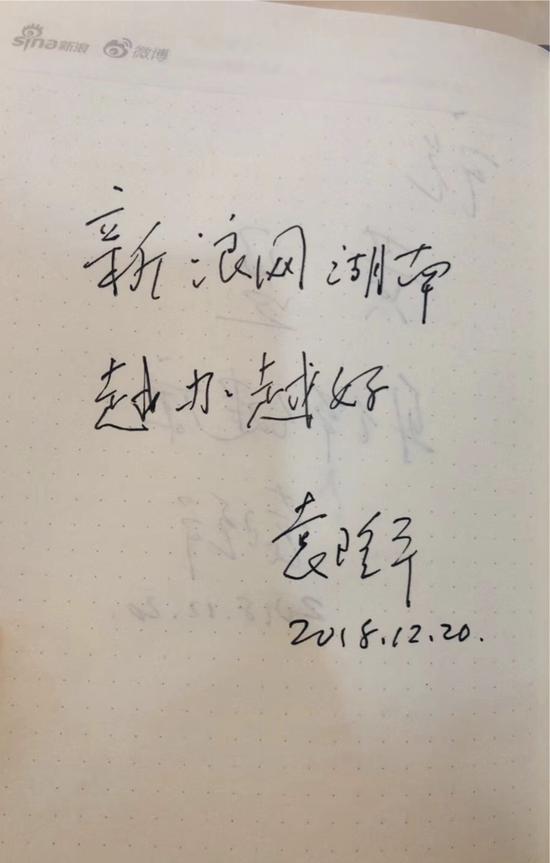 sina新浪 微博
新浪网湖南
越办越好
袁隆平
2018.12.20.